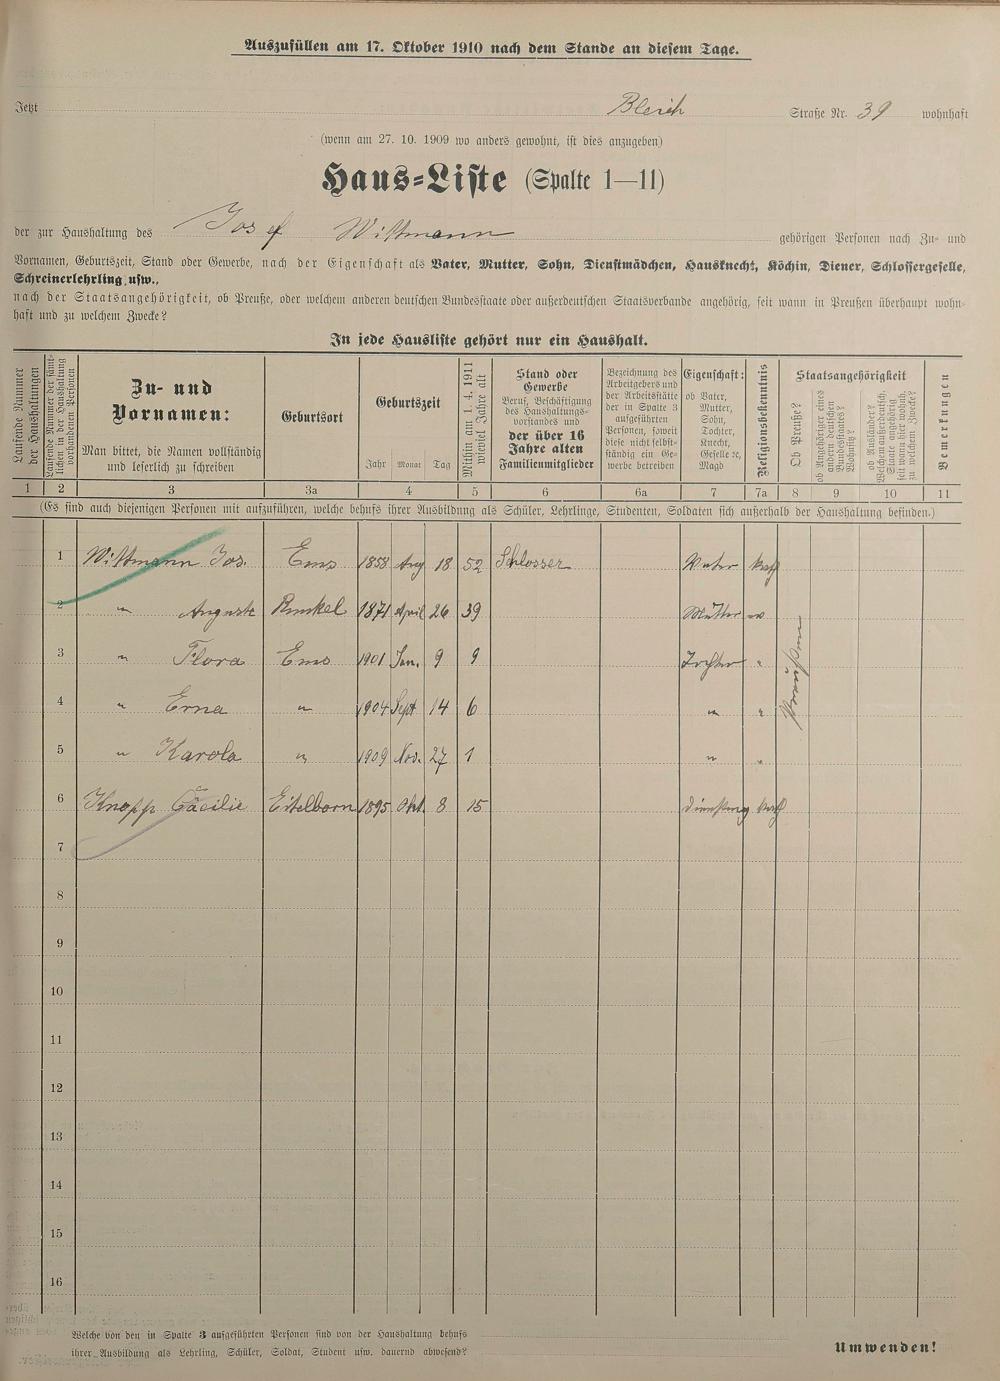 Auszufüllen am 17. Oktober 1910 nach dem Stande an diesem Tage.
Jetzt Bleich Straße Nr. 39 wohnhaft
(wenn am 27. 10. 1909 wo anders gewohnt, ist dies anzugeben)
Haus-Liste (Spalte 1—11)
der zur Haushaltung des Josef Wittmann gehörigen Personen nach Zu- und
Vornamen, Geburtszeit, Stand oder Gewerbe, nach der Eigenschaft als Vater, Mutter, Sohn, Dienstmädchen, Hausknecht, Köchin, Diener, Schlossergeselle,
Schreinerlehrling usw.,
nach der Staatsangehörigkeit, ob Preuße, oder welchem anderen deutschen Bundesstaate oder außerdeutschen Staatsverbande angehörig, seit wann in Preußen überhaupt wohn-
haft und zu welchem Zwecke?
In jede Hausliste gehört nur ein Haushalt.
Laufende Nummer der Haushaltungen
Laufende Nummer der sämt-
lichen in der Haushaltung
vorhandenen Personen
Zu- und
Vornamen:
Man bittet, die Namen vollständig
und leserlich zu schreiben
Geburtsort
Geburtszeit
Jahr Monat Tag
Mithin am 1. 4. 1911
wieviel Jahre alt
Stand oder
Gewerbe
Beruf, Beschäftigung
des Haushaltungs-
vorstandes und
der über 16
Jahre alten
Familienmitglieder
Bezeichnung des
Arbeitgebers und
der Arbeitsstätte
der in Spalte 3
aufgeführten
Personen, soweit
diese nicht selbst-
ständig ein Ge-
werbe betreiben
Eigenschaft:
ob Vater,
Mutter,
Sohn,
Tochter,
Knecht,
Geselle ꝛc,
Magd
Religionsbekenntnis
Staatsangehörigkeit
Ob Preuße?
ob Angehöriger eines
andern deutschen
Bundesstaates?
Wohnsitz?
ob Ausländer?
Welchem außerdeutsch.
Staate angehörig
seit wann hier wohnh.
zu welchem Zwecke?
Bemerkungen
1 2 3 3a 4 5 6 6a 7 7a 8 9 10 11
(Es sind auch diejenigen Personen mit aufzuführen, welche behufs ihrer Ausbildung als Schüler, Lehrlinge, Studenten, Soldaten sich außerhalb der Haushaltung befinden.)
1 Wittmann Jos. Ems 1858 Aug 18 52 Schlosser Vater kath
2 " Auguste Runkel 1871 April 26 39 Mutter "
3 " Flora Ems 1901 Jan. 9 9 Tochter "
4 " Erna " 1904 Sept 14 6 " "
5 " Karola " 1909 Nov. 27 1 " "
Preußen
6 Knopp Cäcilie Eitelborn 1895 Okt. 8 15 Dienstmg kath
7
8
9
10
11
12
13
14
15
16
Welche von den in Spalte 3 aufgeführten Personen sind von der Haushaltung behufs
ihrer Ausbildung als Lehrling, Schüler, Soldat, Student usw. dauernd abwesend?
Umwenden!